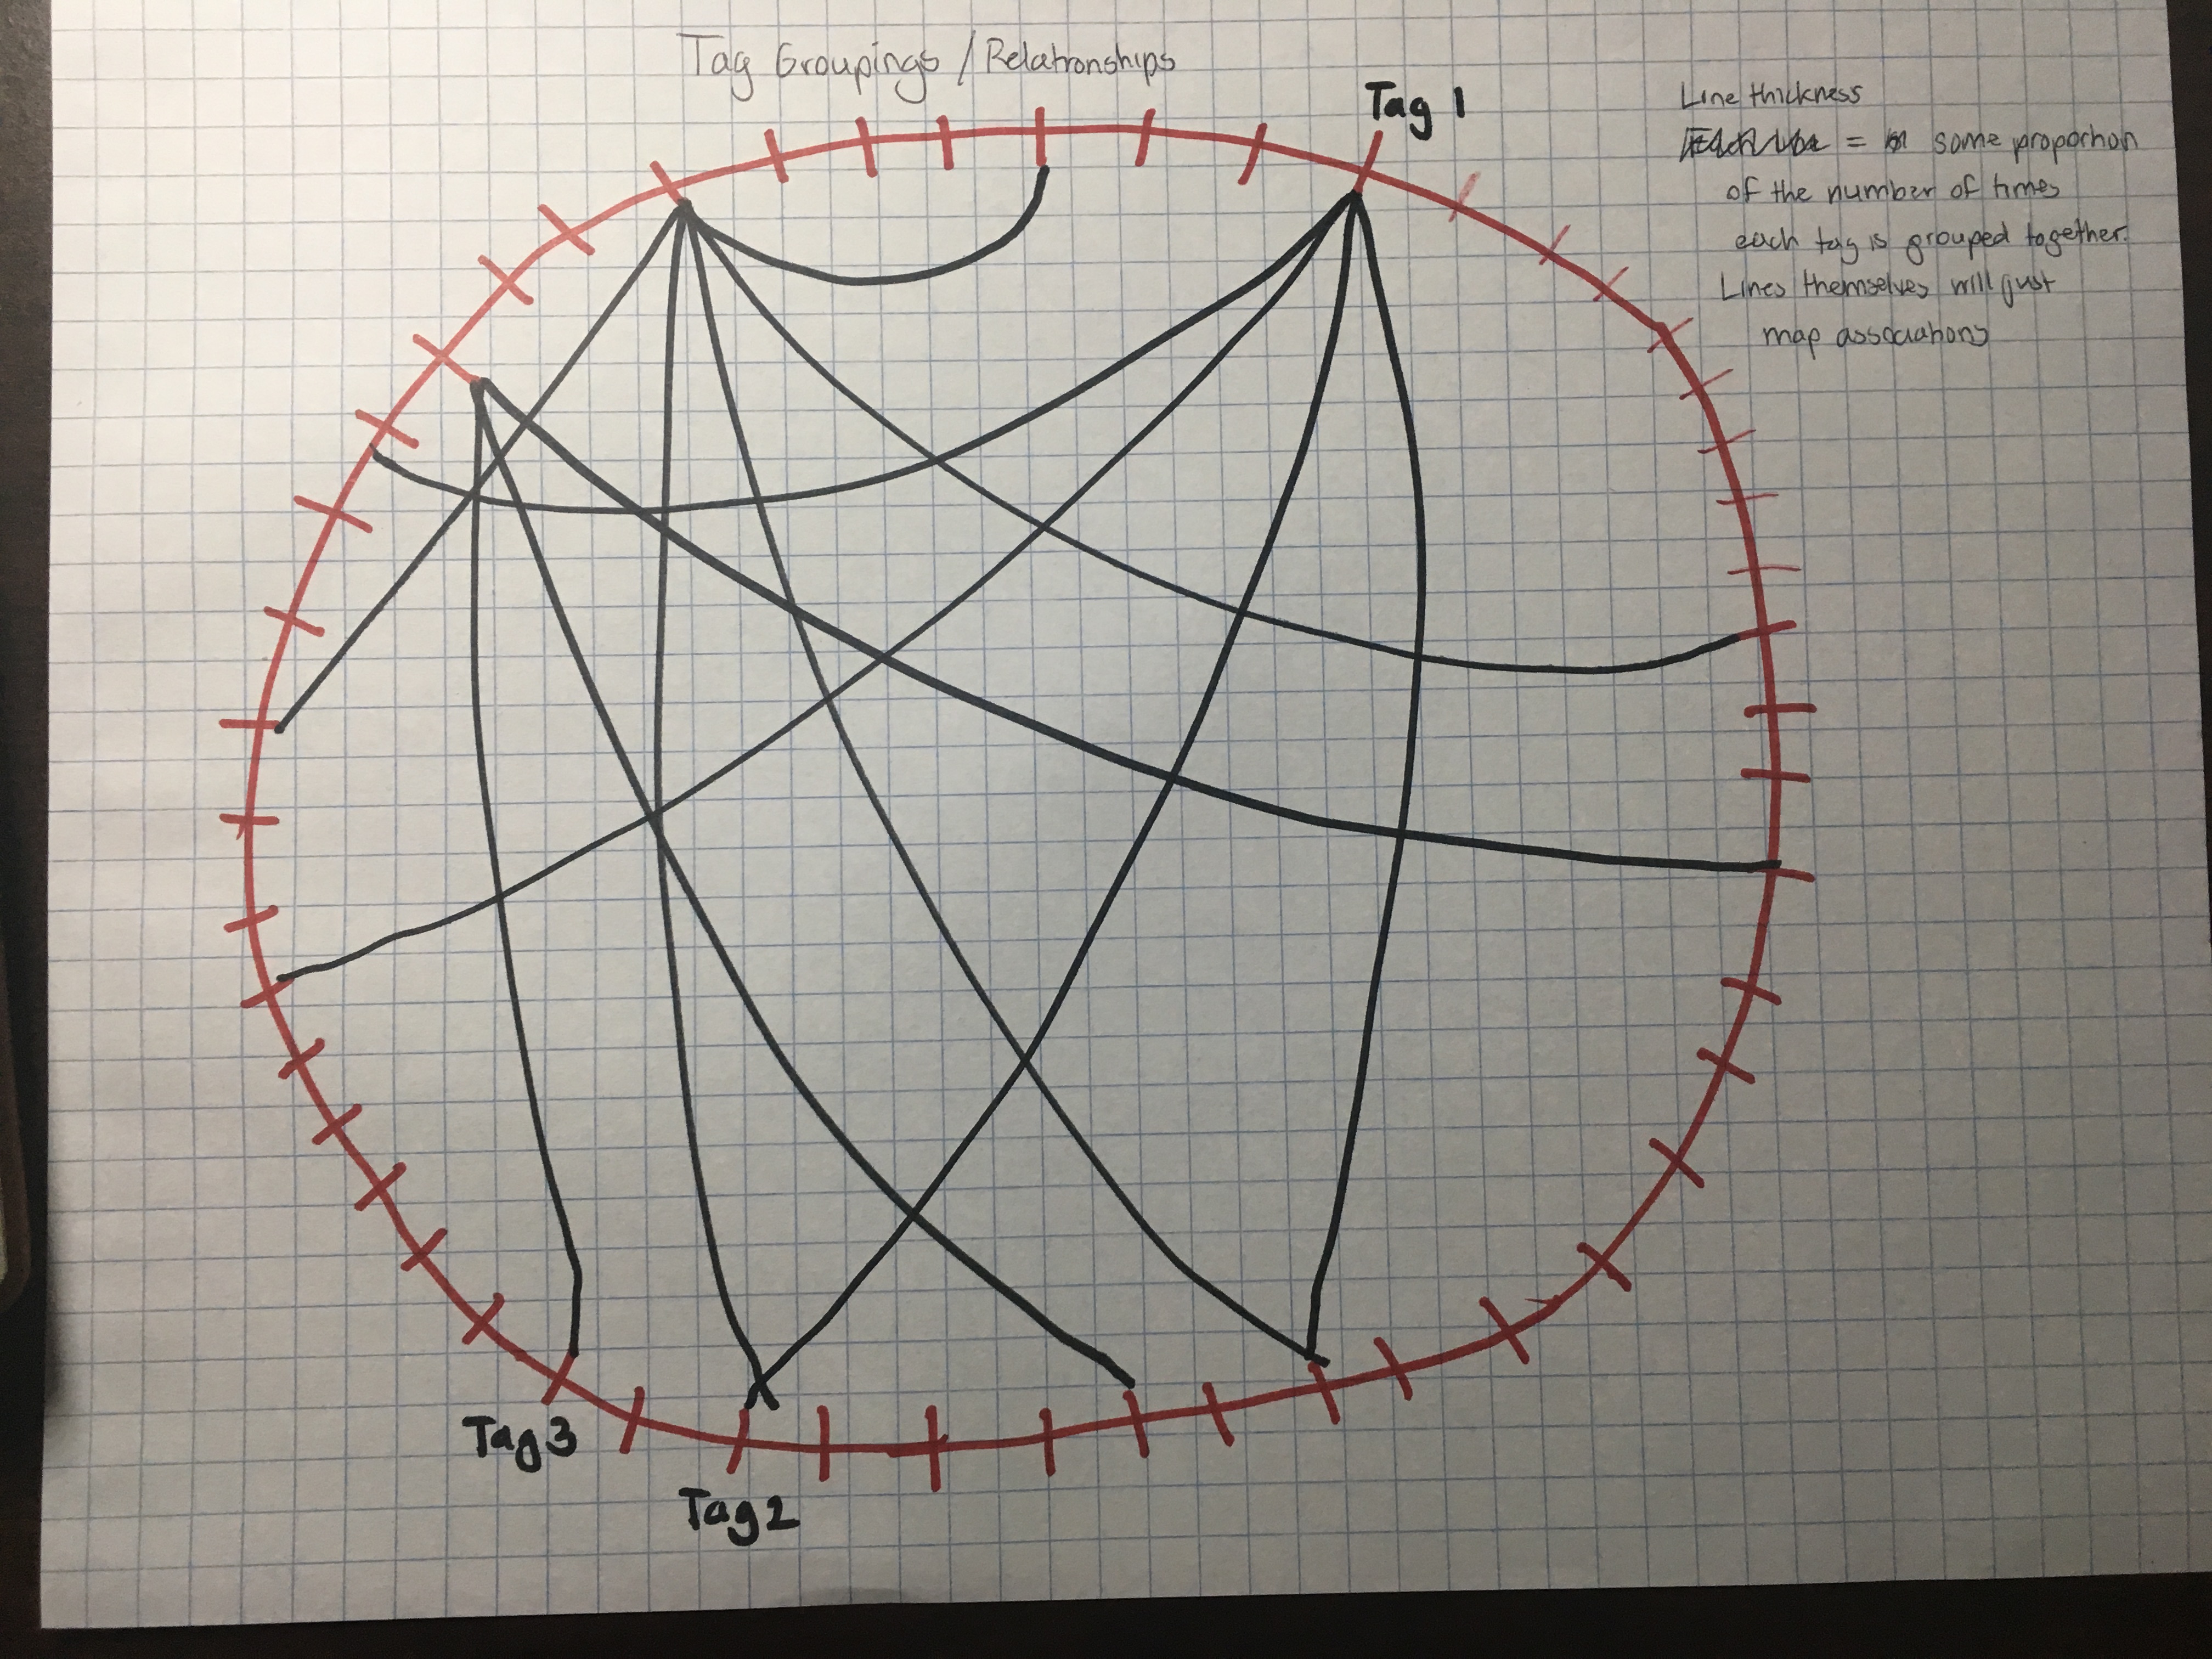 Tag Groupings / Relationships
Tag 1
Line thickness
= some proportion
of the number of times
each tag is grouped together.
Lines themselves will just
map associations
Tag 3
Tag 2